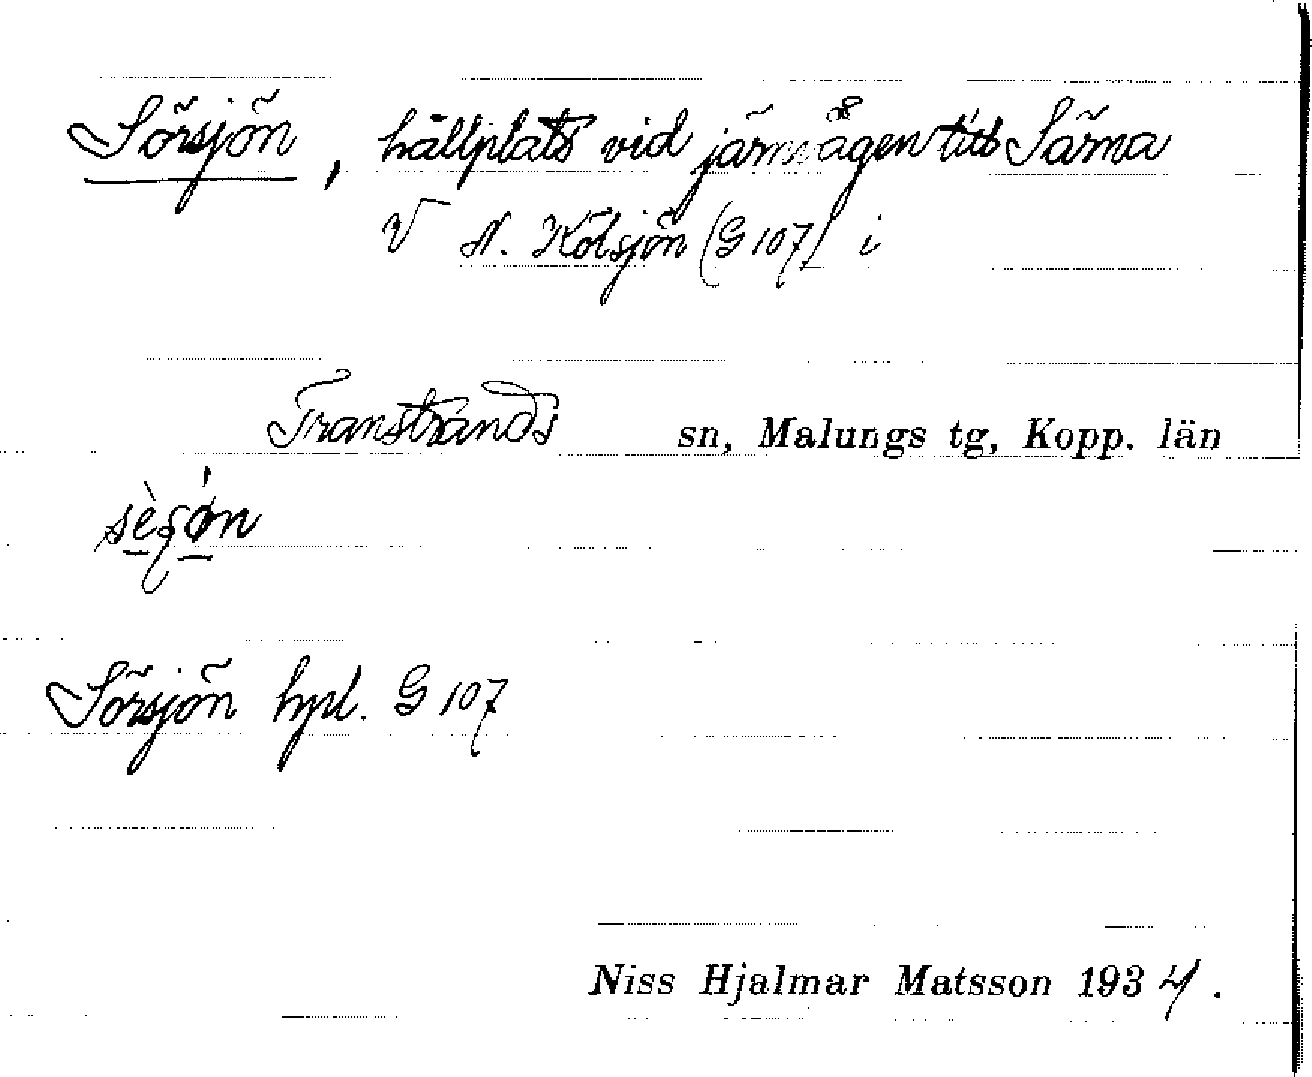 Sörsjön, hållplats vid järnvägen till Särna
V N. Kölsjön (G 107) i
Transtrands sn, Malungs tg, Kopp. län
Sörsjön hpl. G 107
Niss Hjalmar Matsson 1934.